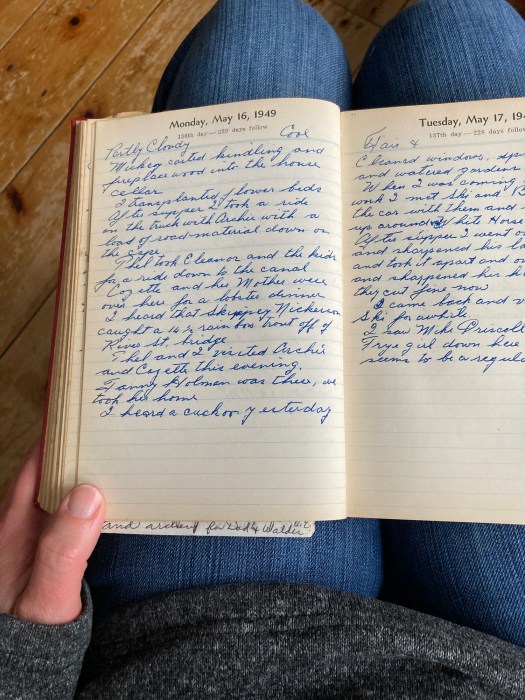 Monday, May 16, 1949
136th day — 229 days follow
Partly Cloudy Cool
Mickey carted kindling and
fireplace wood into the house
cellar
I transplanted flower beds
After supper I took a ride
on the truck with Archie with a
load of road material down on
the Cape
Thel took Eleanor and the kids
for a ride down to the canal
Cozette and her Mother were
over here for a lobster dinner
I heard that Skippey Nickerson
caught a 14 ½ rainbow trout off of
River St. bridge
Thel and I visited Archie
and Cozette this evening.
Fanny Holman was there, we
took her home
I heard a cuckoo yesterday
and archery for Dad & Walder
Tuesday, May 17, 194
137th day — 228 days follow
Fair &
Cleaned windows,
and watered gardens
When I was coming
work I met Ski and B
the car with them and
up around White Horse
After supper I went o
and sharpened his la
and took it apart and
and sharpened her
they cut fine now
I came back and
Ski for awhile
I saw Mike Driscoll
Frye girl down here
seems to be a regula